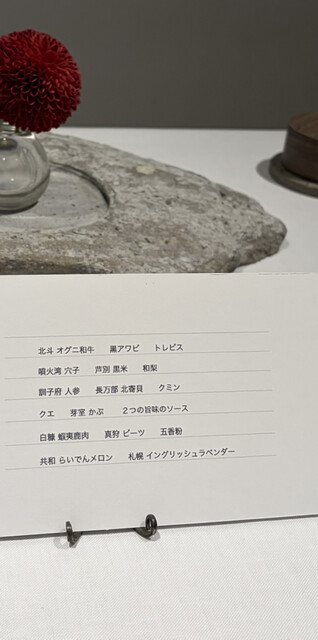 北斗 オグニ和牛 黒アワビ トレビス
噴火湾 穴子 芦別 黒米 和梨
訓子府 人参 長万部 北寄貝 クミン
クエ 芽室 かぶ 2つの旨味のソース
白糠 蝦夷鹿肉 真狩 ビーツ 五香粉
共和 らいでんメロン 札幌 イングリッシュラベンダー